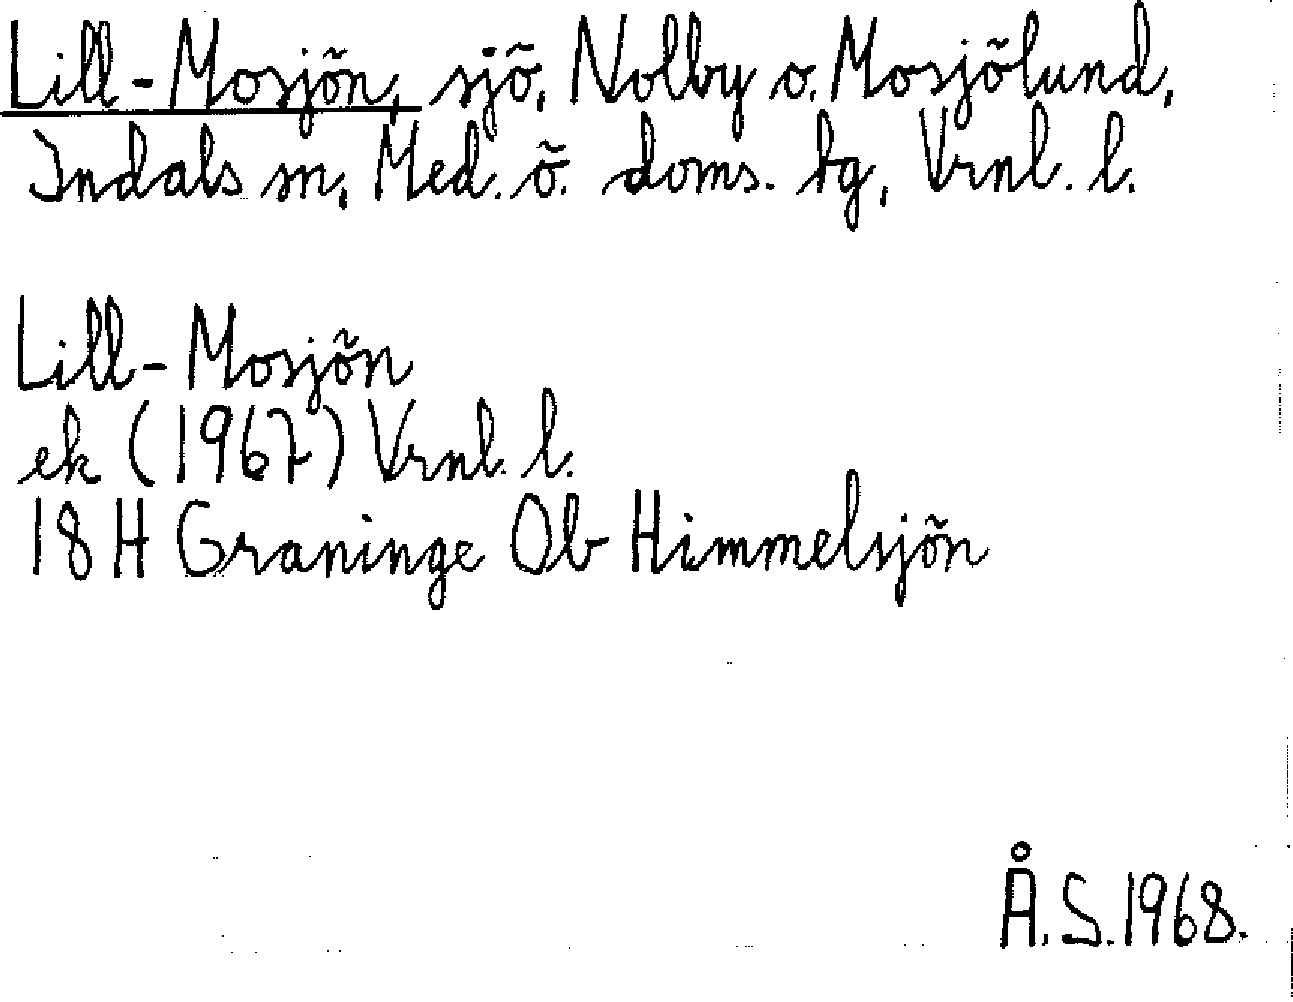 Lill-Mosjön, sjö, Nolby o. Mosjölund,
Indals sn, Med. ö. doms. tg, Vrnl. l.
Lill-Mosjön
ek (1967) Vrnl. l.
18 H Graninge Ob Himmelsjön
Å.S.1968.